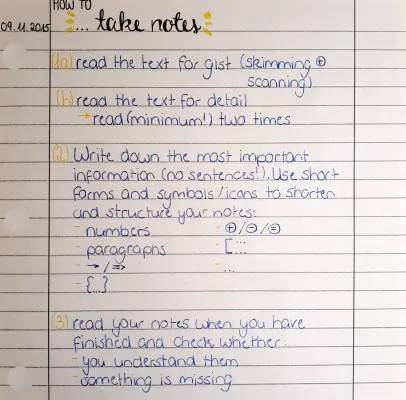 HOW TO
09.11.2015 ... take notes
(1a) read the text for gist (skimming ⊕
scanning)
(b) read the text for detail
→ read (minimum!) two times
(2) Write down the most important
information (no sentences!). Use short
forms and symbols/icons to shorten
and structure your notes:
- numbers - ⊕/⊖/⊜
- paragraphs - [...
- → / => - ...
- {...}
(3) read your notes when you have
finished and check whether:
- you understand them
- something is missing